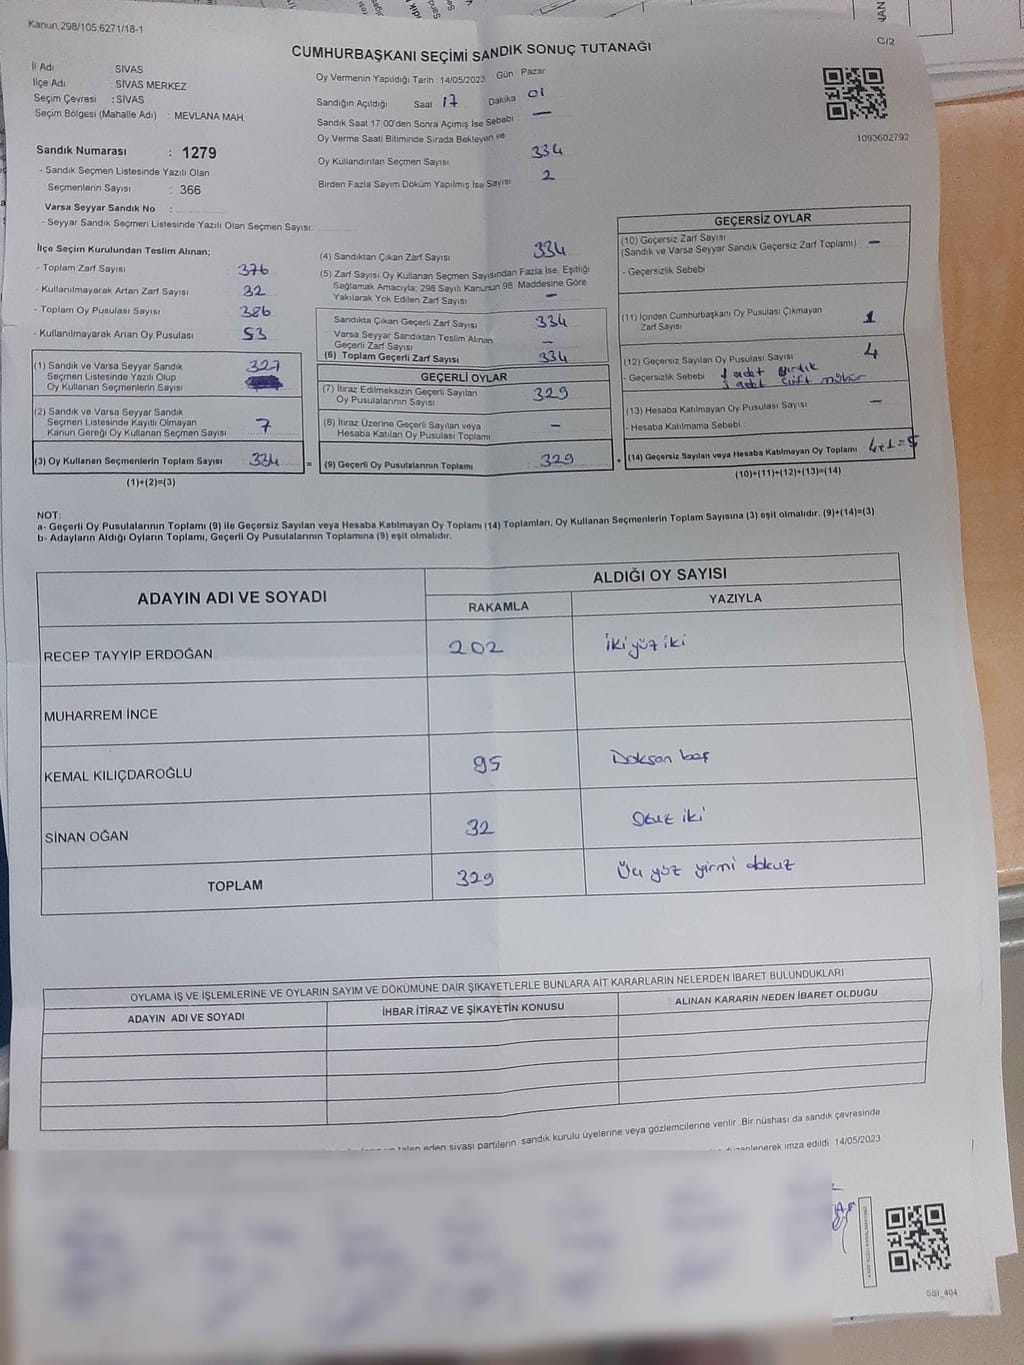 Kanun,298/105,6271/18-1
C/2
CUMHURBAŞKANI SEÇİMİ SANDIK SONUÇ TUTANAĞI
İl Adı SİVAS
İlçe Adı : SİVAS MERKEZ
Seçim Çevresi : SİVAS
Seçim Bölgesi (Mahalle Adı) : MEVLANA MAH.
Sandık Numarası : 1279
- Sandık Seçmen Listesinde Yazılı Olan
Seçmenlerin Sayısı : 366
Varsa Seyyar Sandık No :
- Seyyar Sandık Seçmen Listesinde Yazılı Olan Seçmen Sayısı:
Oy Vermenin Yapıldığı Tarih : 14/05/2023 Gün Pazar
Sandığın Açıldığı Saat 17 Dakika 01
Sandık Saat 17.00'den Sonra Açımış İse Sebebi —
Oy Verme Saati Bitiminde Sırada Bekleyen ve
Oy Kullandırılan Seçmen Sayısı 334
Birden Fazla Sayım Döküm Yapılmış İse Sayısı 2
1093602792
İlçe Seçim Kurulundan Teslim Alınan;
- Toplam Zarf Sayısı : 376
- Kullanılmayarak Artan Zarf Sayısı : 32
- Toplam Oy Pusulası Sayısı : 386
- Kullanılmayarak Artan Oy Pusulası : 53
(1) Sandık ve Varsa Seyyar Sandık 327
Seçmen Listesinde Yazılı Olup
Oy Kullanan Seçmenlerin Sayısı
(2) Sandık ve Varsa Seyyar Sandık
Seçmen Listesinde Kayıtlı Olmayan
Kanun Gereği Oy Kullanan Seçmen Sayısı : 7
(3) Oy Kullanan Seçmenlerin Toplam Sayısı : 334 =
(1)+(2)=(3)
(4) Sandıktan Çıkan Zarf Sayısı 334
(5) Zarf Sayısı Oy Kullanan Seçmen Sayısından Fazla İse, Eşitliği
Sağlamak Amacıyla; 298 Sayılı Kanunun 98. Maddesine Göre
Yakılarak Yok Edilen Zarf Sayısı —
Sandıkta Çıkan Geçerli Zarf Sayısı 334
Varsa Seyyar Sandıktan Teslim Alınan
Geçerli Zarf Sayısı —
(6) Toplam Geçerli Zarf Sayısı 334
GEÇERLİ OYLAR
(7) İtiraz Edilmeksizin Geçerli Sayılan
Oy Pusulalarının Sayısı 329
(8) İtiraz Üzerine Geçerli Sayılan veya
Hesaba Katılan Oy Pusulası Toplamı —
(9) Geçerli Oy Pusulalarının Toplamı 329 +
GEÇERSİZ OYLAR
(10) Geçersiz Zarf Sayısı
(Sandık ve Varsa Seyyar Sandık Geçersiz Zarf Toplamı) —
- Geçersizlik Sebebi
(11) İçinden Cumhurbaşkanı Oy Pusulası Çıkmayan
Zarf Sayısı 1
(12) Geçersiz Sayılan Oy Pusulası Sayısı 4
- Geçersizlik Sebebi 1 adet yırtık
3 adet çift mühür
(13) Hesaba Katılmayan Oy Pusulası Sayısı —
- Hesaba Katılmama Sebebi
(14) Geçersiz Sayılan veya Hesaba Katılmayan Oy Toplamı 4+1=5
(10)+(11)+(12)+(13)=(14)
NOT:
a- Geçerli Oy Pusulalarının Toplamı (9) ile Geçersiz Sayılan veya Hesaba Katılmayan Oy Toplamı (14) Toplamları, Oy Kullanan Seçmenlerin Toplam Sayısına (3) eşit olmalıdır. (9)+(14)=(3)
b- Adayların Aldığı Oyların Toplamı, Geçerli Oy Pusulalarının Toplamına (9) eşit olmalıdır.
ADAYIN ADI VE SOYADI
ALDIĞI OY SAYISI
RAKAMLA YAZIYLA
RECEP TAYYİP ERDOĞAN 202 İki yüz iki
MUHARREM İNCE
KEMAL KILIÇDAROĞLU 95 Doksan beş
SİNAN OĞAN 32 Otuz iki
TOPLAM 329 Üç yüz yirmi dokuz
OYLAMA İŞ VE İŞLEMLERİNE VE OYLARIN SAYIM VE DÖKÜMÜNE DAİR ŞİKAYETLERLE BUNLARA AİT KARARLARIN NELERDEN İBARET BULUNDUKLARI
ADAYIN ADI VE SOYADI İHBAR İTİRAZ VE ŞİKAYETİN KONUSU ALINAN KARARIN NEDEN İBARET OLDUĞU
talep eden siyasi partilerin sandık kurulu üyelerine veya gözlemcilerine verilir. Bir nüshası da sandık çevresinde
düzenlenerek imza edildi. 14/05/2023
SSI_404